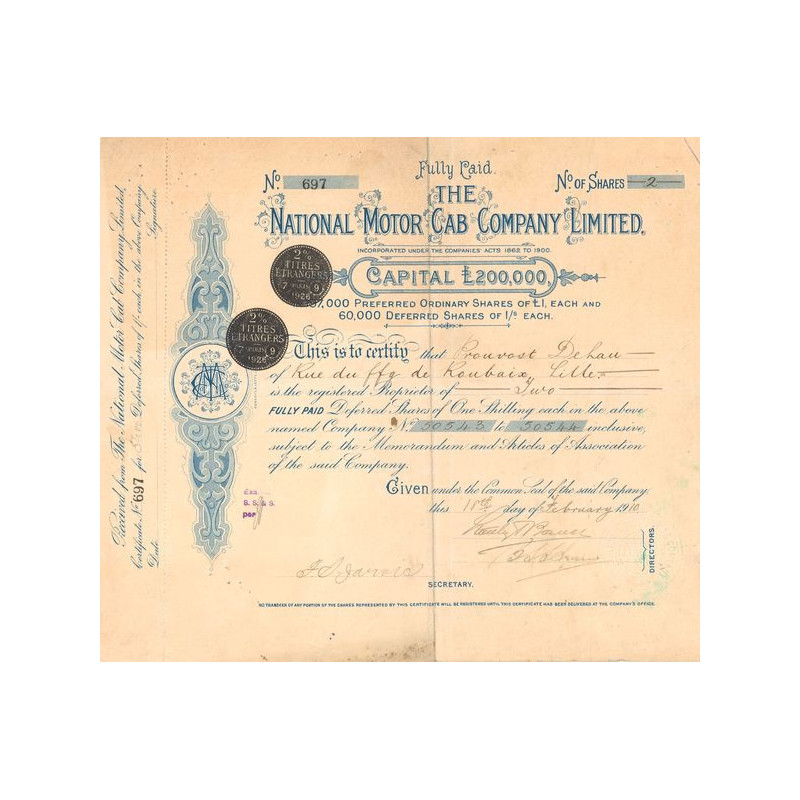 Fully Paid.
No. 697
No. OF SHARES 2
THE
NATIONAL MOTOR CAB COMPANY LIMITED.
INCORPORATED UNDER THE COMPANIES' ACTS 1862 TO 1900.
CAPITAL £200,000,
7,000 PREFERRED ORDINARY SHARES OF £1, EACH AND
60,000 DEFERRED SHARES OF 1/s EACH.
2%
TITRES
ETRANGERS
7 9
1926
2%
TITRES
ETRANGERS
7 9
1926
This is to certify that Prouvost Dehau
of Rue du ffg de Roubaix, Lille
is the registered Proprietor of Two
FULLY PAID Deferred Shares of One Shilling each in the above
named Company No. 50543 to 50544 inclusive,
subject to the Memorandum and Articles of Association
of the said Company.
Given under the Common Seal of the said Company
this day of February 1910
S. S. & S.
per
DIRECTORS.
SECRETARY.
NO TRANSFER OF ANY PORTION OF THE SHARES REPRESENTED BY THIS CERTIFICATE WILL BE REGISTERED UNTIL THIS CERTIFICATE HAS BEEN DELIVERED AT THE COMPANY'S OFFICE.
Received from The National Motor Cab Company Limited,
Certificate No. 697 for Deferred Shares of 1/- each in the above Company.
Date Signature